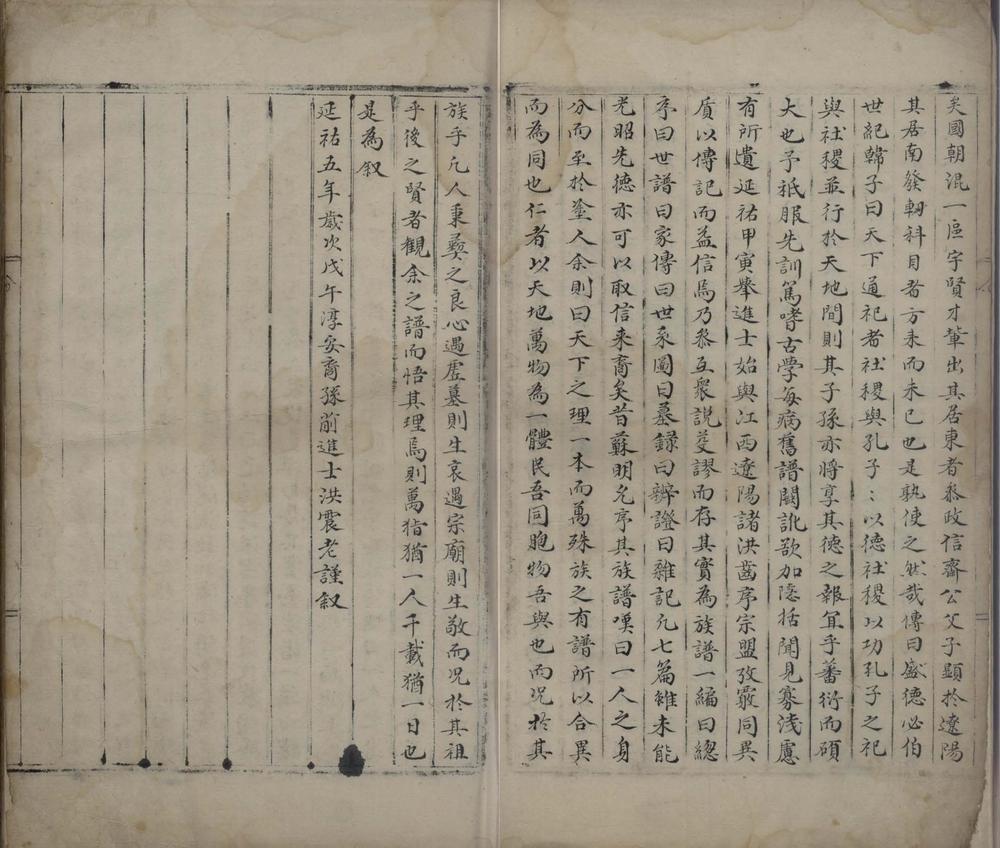 矣國朝混一區宇賢才輩出其居東者叅政信齋公父子顯於遼陽
其居南發軔科目者方来而未已也是孰使之然哉傳曰盛德必伯
世紀韓子曰天下通祀者社稷與孔子〻以德社稷以功孔子之祀
與社稷並行於天地間則其子孫亦將享其德之報宜乎蕃衍而碩
大也予祇服先訓篤嗜古學每病舊譜闕訛欲加隱括聞見寡淺慮
有所遺延祐甲寅舉進士始與江西遼陽諸洪齒序宗盟孜覈同異
質以傳記而益信焉乃叅互衆說芟謬而存其實為族譜一編曰總
序曰世譜曰家傳曰世系圖曰墓錄曰辨證曰雜記凢七篇雖未能
光昭先德亦可以取信来裔矣昔蘇明允序其族譜嘆曰一人之身
分而至於塗人余則曰天下之理一本而萬殊族之有譜所以合異
而為同也仁者以天地萬物為一體民吾同胞物吾與也而况於其
族乎凢人秉彛之良心遇虗墓則生哀遇宗廟則生敬而况於其祖
乎後之賢者觀余之譜而悟其理焉則萬指猶一人千載猶一日也
是為叙
延祐五年歲次戊午淳安裔孫前進士洪震老謹叙